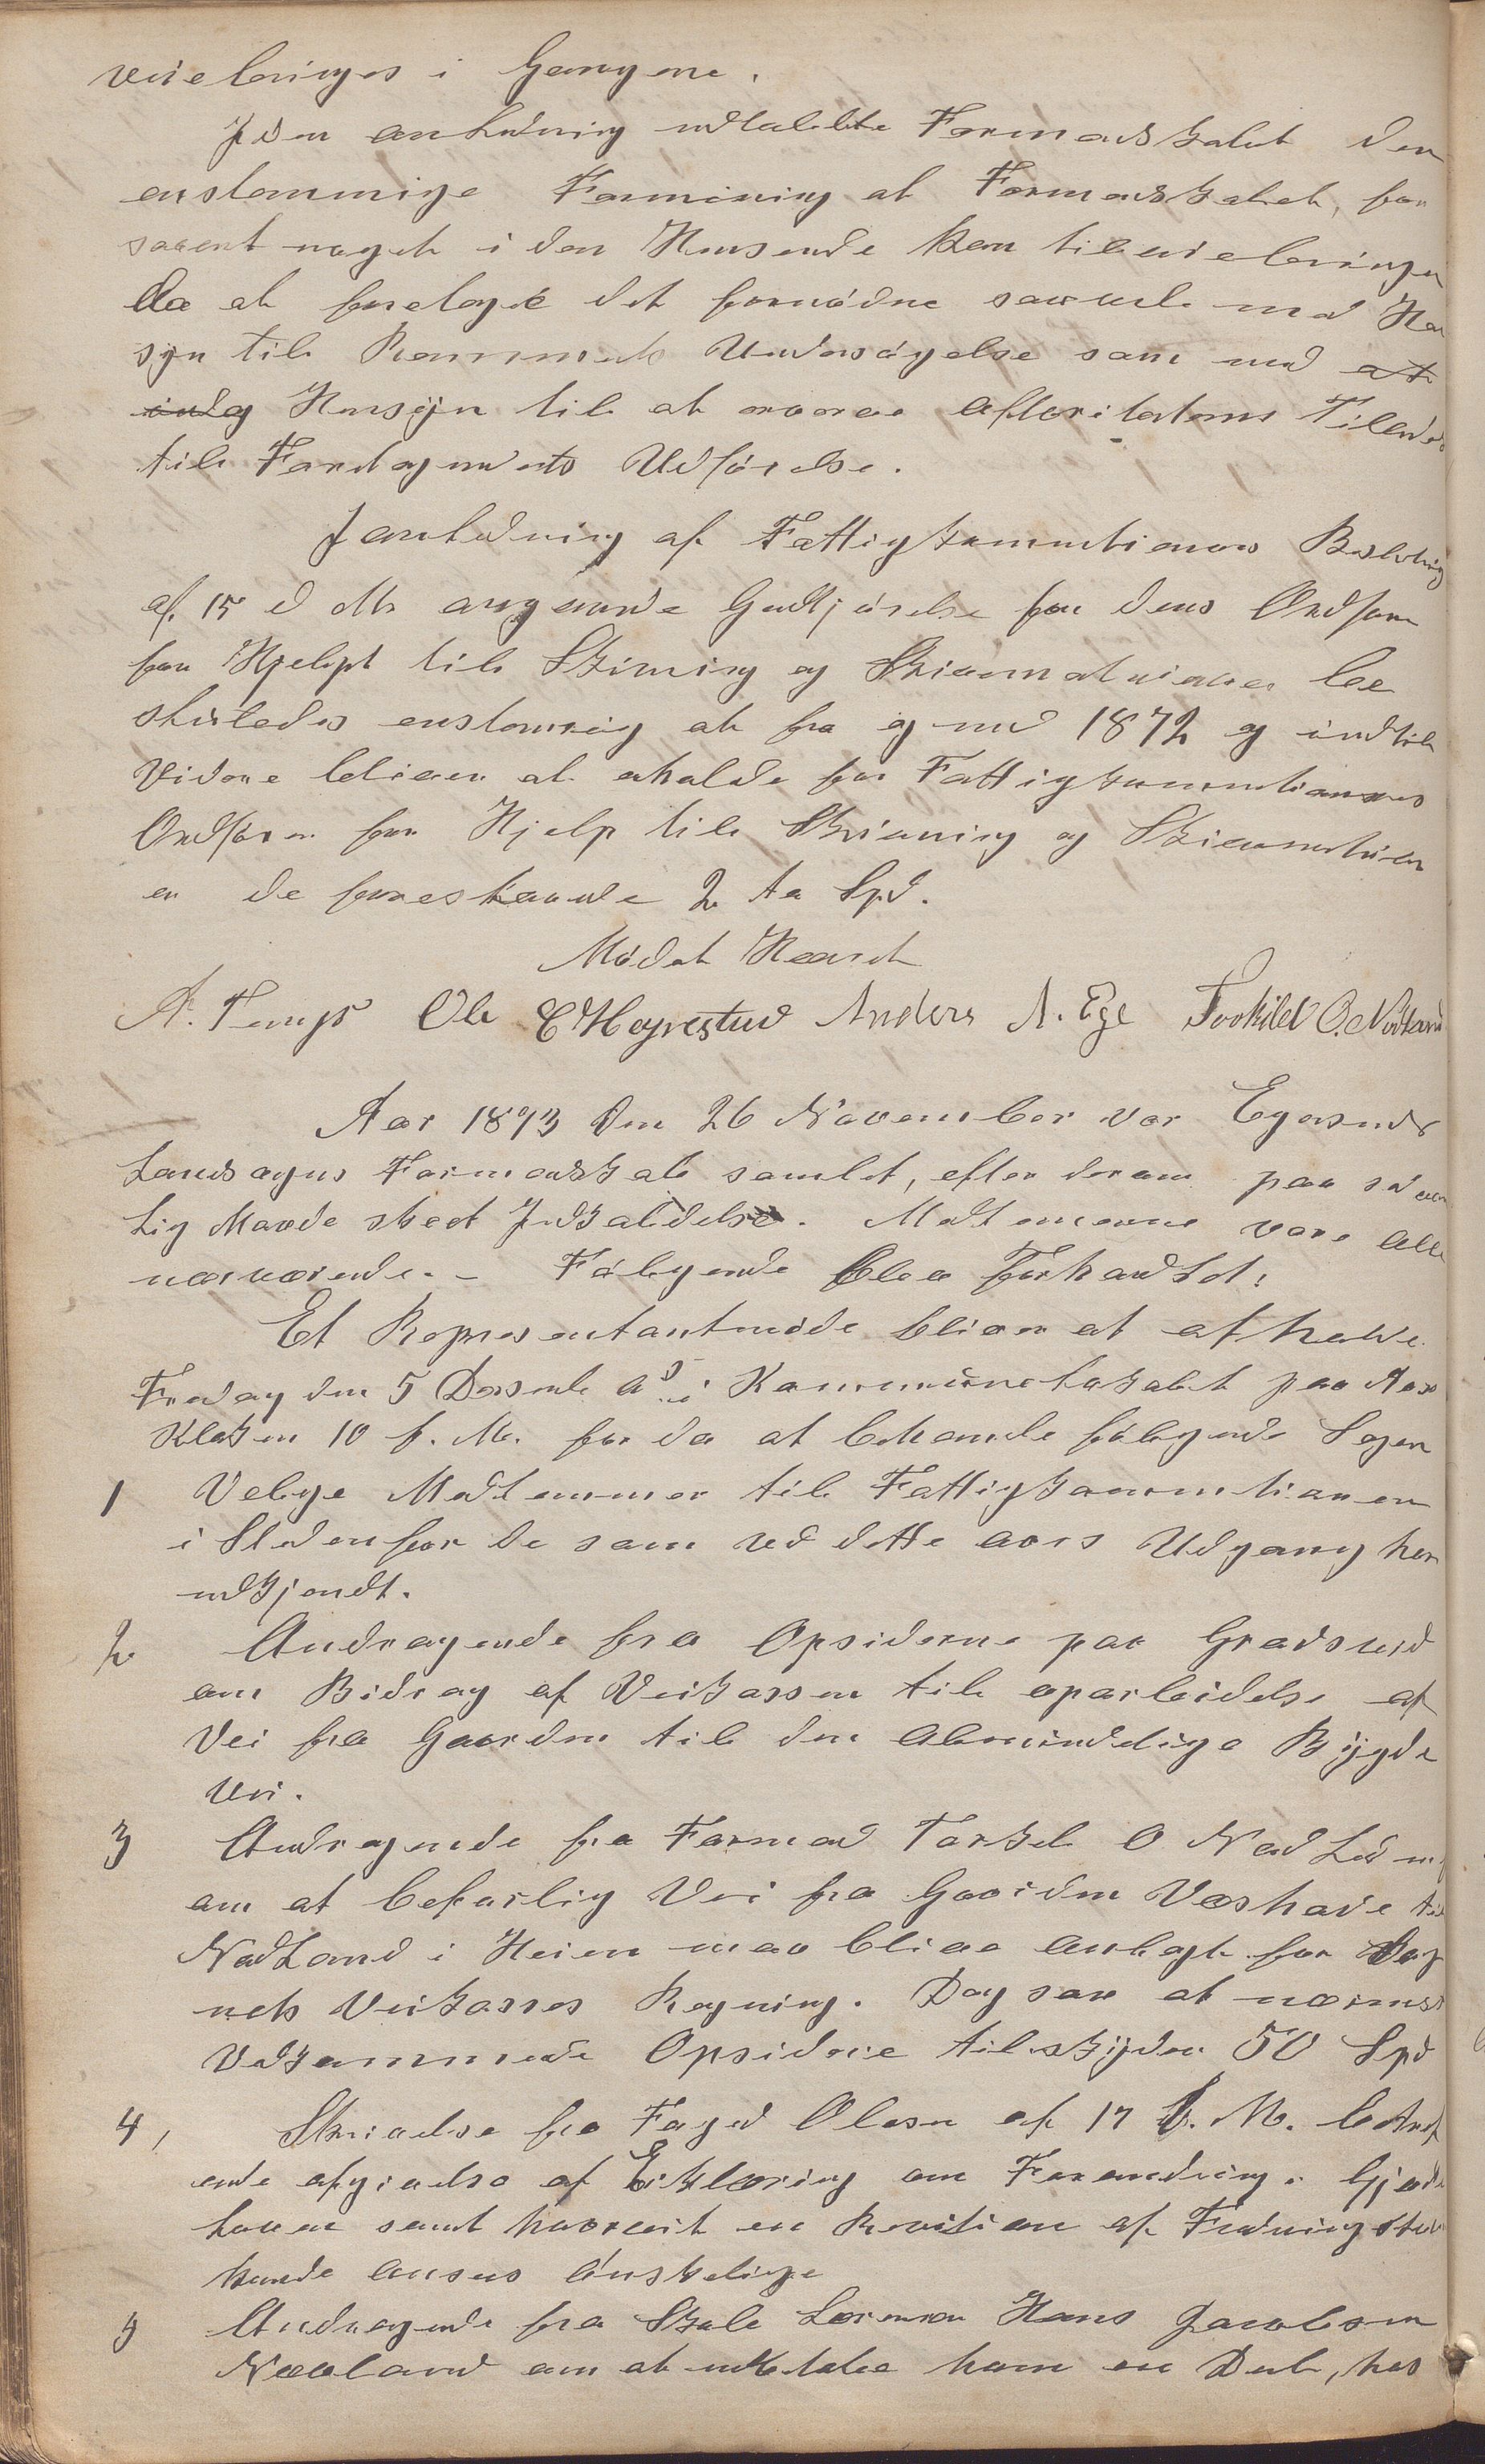 veiebringes i Gangene.
I den anledning udtalte Formandskabet den
enstemmige Formening at Formandskabet, for
saavidt noget i den Henseende kan tilveiebringes
da at foretage det fornødne saavel med Hen
syn til Rummets Undersøgelse som med at
indg Hensyn til at erverve Aftoritetens Tillad
til Foretagendets Udførelse.
I anledning af Fattigkommitionens Beslutning
af 15 d M. angaaende Godtjørelse for dens Ordfører
for Hjelpt til Skrivning og Skrivmaterialier be
sluttedes enstemmig at fra og med 1872 og indtil
Videre bliver at erholde for Fattigkommitionens
Ordfører for Hjelp til Skrivning og Skrivmateriali
er de foreslaaede 2 to Spd.
Mødet Hævet
A. Fengs Ole E Hegrestad Anders A. Ege Torkild O. Nodland
Aar 1873 den 26 November var Egersunds
Landsogns Formandskab samlet, efter derom paa sædvan
lig Maade skeet Indkaldelse. Medlemmerne vare alle
nærværende. – Følgende blev forhandlet:
Et Representantmøde bliver at afholde
Fredag den 5 Desemb. A.d. i Kommunelokalet paa Aase
Klokken 10 f. M. for da at behandle følgende Sager
1 Velge Medlemmer til Fattigkommitionen
i Steden for de som ved dette aars Udgang har
udtjendt.
2 Andragende fra Opsiderne paa Gradsted
om Bidrag af Veikassen til oparbeidelse af
Vei fra Gaarden til den Almindelige Bygde
vei.
3 Andragende fra Formand Torkel O Nodland
om at beferlig Vei fra Gaarden Vashovde til
Nodland i Heien maa blive anlagt for Sog
nets Veikasses Regning. Dog saa at nærmest
Vedkommende Opsiddere tilskyder 50 Spd
4, Skrivelse fra Foged Olesen af 17 d. M. betref
ende afgivelse af Erklæring om Forandring i Gjæld
loven samt hvorvidt en Revition af
kunde ansees ønskelige
5 Andragende fra Skole Lærerer Hans Jacobsen
Nevland om at udbetale ham en Deel, hos